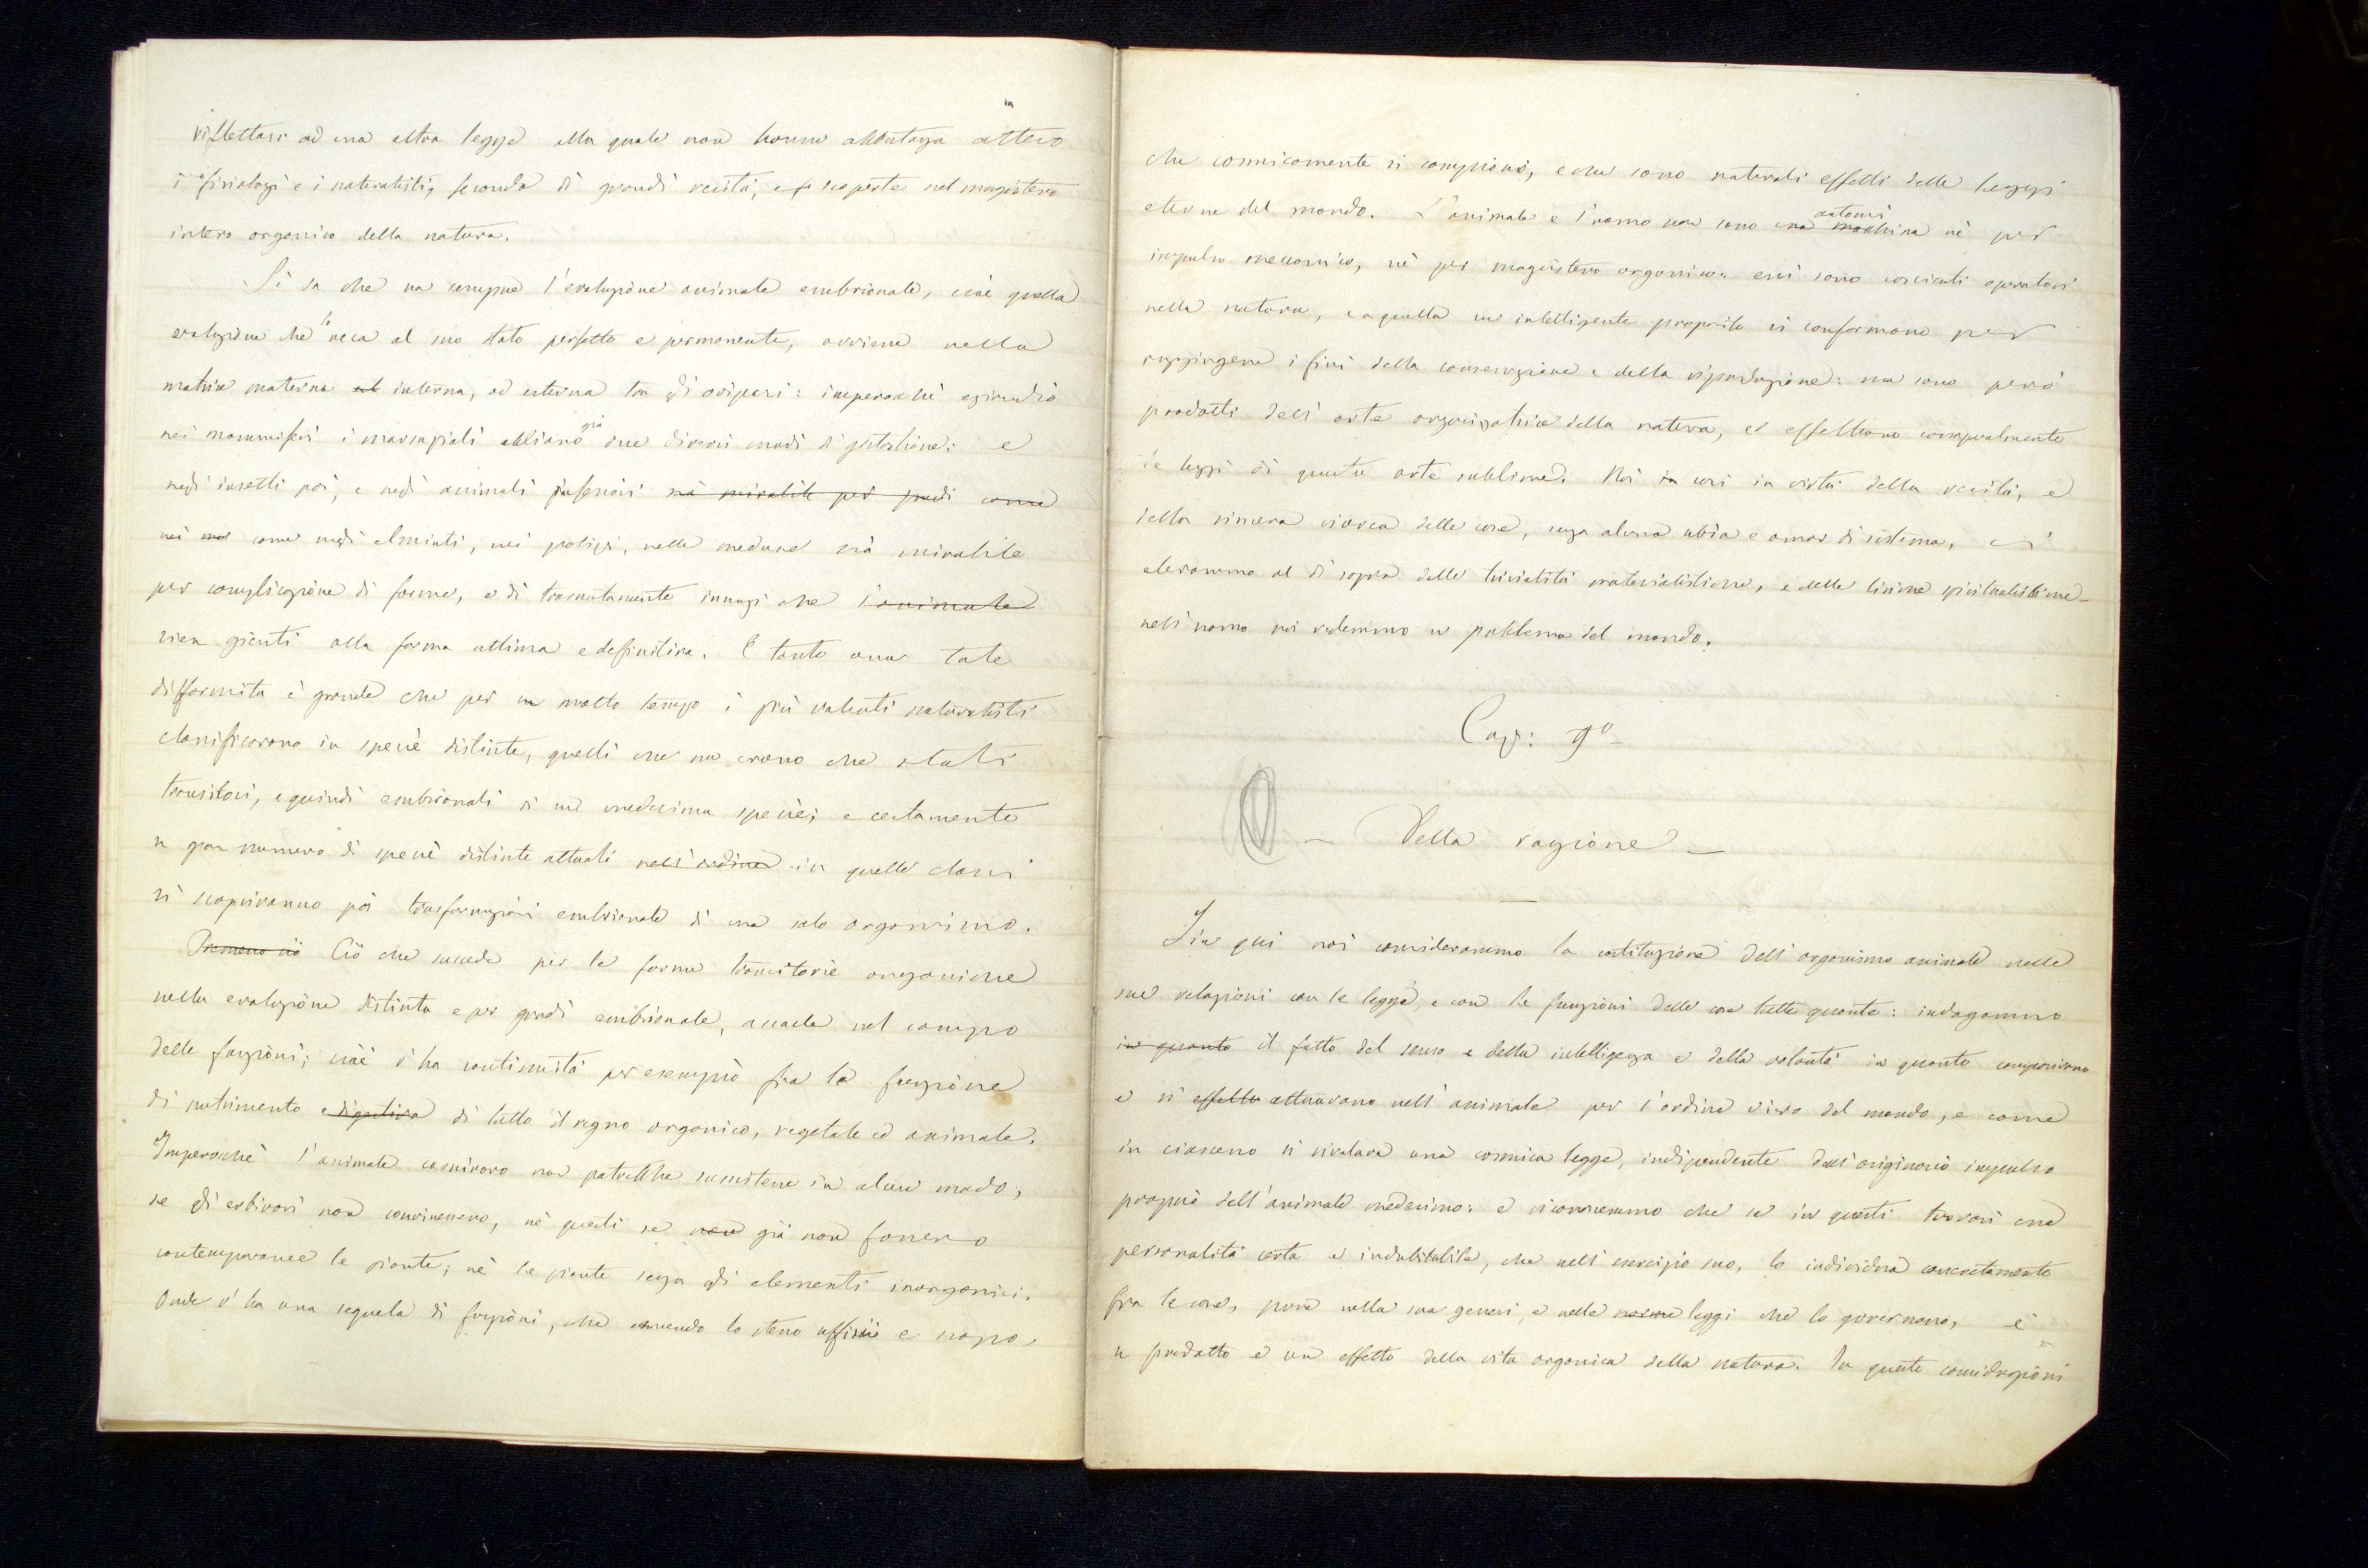 riflettasi ad una altra legge alla quale non hanno abbastanza atteso
i fisiologi e i naturalisti, feconda di grandi verità, e scoperte nel magistero
intero organico della natura.
Si sa che ua sempre l'evoluzione animale embrionale, cioè quella
evoluzione che lo reca al suo stato perfetto e permanente, avviene nella
matrice materna interna, od esterna tra gli ovipari: imperocchè eziandio
nei mammiferi i marsupiali abbiano già due diversi modi di gestazione: e
negli insetti poi, e negli animali inferiori nà mirabile per gradi come
nei come negli elminti, nei polipi, nelle meduse và mirabile
per complicazione di forme, e di trasmutamente innanzi che l'animale
sien gienti alla forma ultima e definitiva. E tanto una tale
difformità è grande che per molto tempo i più valenti naturalisti
classificarono in spenè distinte, quelli che no erano che stati
transitori, e quindi embrionali di una medesima specie; e certamente
u gran numero di specie distinte attuali nell'ordine in quelle classi
si scopriranno poi trasformazioni embrionale di una solo organismo.
Ciò che succede per le forme transitorie organiche
nella evoluzione distinta e per gradi embrionale, accade nel campo
delle funzioni; cioè v'ha continuità per esempio fra la funzione
di nutrimento e digestiva di tutto il regno organico, vegetale ed animale.
Imperocchè l'animale carnivoro non potrebbe sussistere in alcun modo,
se gli erbivori non convivessero, nè questi se non già non fossero
contemporanee le piante; nè le piante senza gli elementi inorganici.
Onde v'ha una sequela di funzioni, che essendo lo steno uffizio e scopo,
che cosmicamente si compiono, e che sono naturali effetti delle leggi
eterne del mondo. L'animale e l'uomo non sono una machina automi nè per
impulso meccanico, nè per magistero organico: essi sono coscienti operatori
nella natura, e a quella con intelligente proposito si conformano per
raggiungere i fini della conservazione e della riproduzione: ma sono però
prodotti dell'arte organizatrice della natura, ed effettuano corporalmente
le leggi di questa arte sublime. Noi così in virtù della verità, e
della sincera ricerca delle cose, senza alcuna ubìa e amor di sistema, ci
elevammo al di sopra delle trivialità materialistiche, e delle spiritualistiche –
nell'uomo noi vedemmo u problema del mondo.
Cap: 9º
– Della ragione –
Sin qui noi considerammo la costituzione dell'organismo animale nelle
sue relazioni con le leggi, e con le funzioni delle cose tutte quante: indagammo
in quanto il fatto del senso e della intelligenza e della volontà in quanto compariscono
e si effettu attuavano nell'animale per l'ordine vivo del mondo, e come
in ciascuno si rivelava una cosmica legge, indipendente dall'originario impulso
proprio dell'animale medesimo: e riconoscemmo che se in questi trovasi una
personalità certa e indubitabile, che nell'esercizio suo, lo individua concretamente
fra le cose, pure nella sua genesi, e nelle norme leggi che lo governano, è
u prodotto e un effetto della vita organica della natura. In queste considerazioni